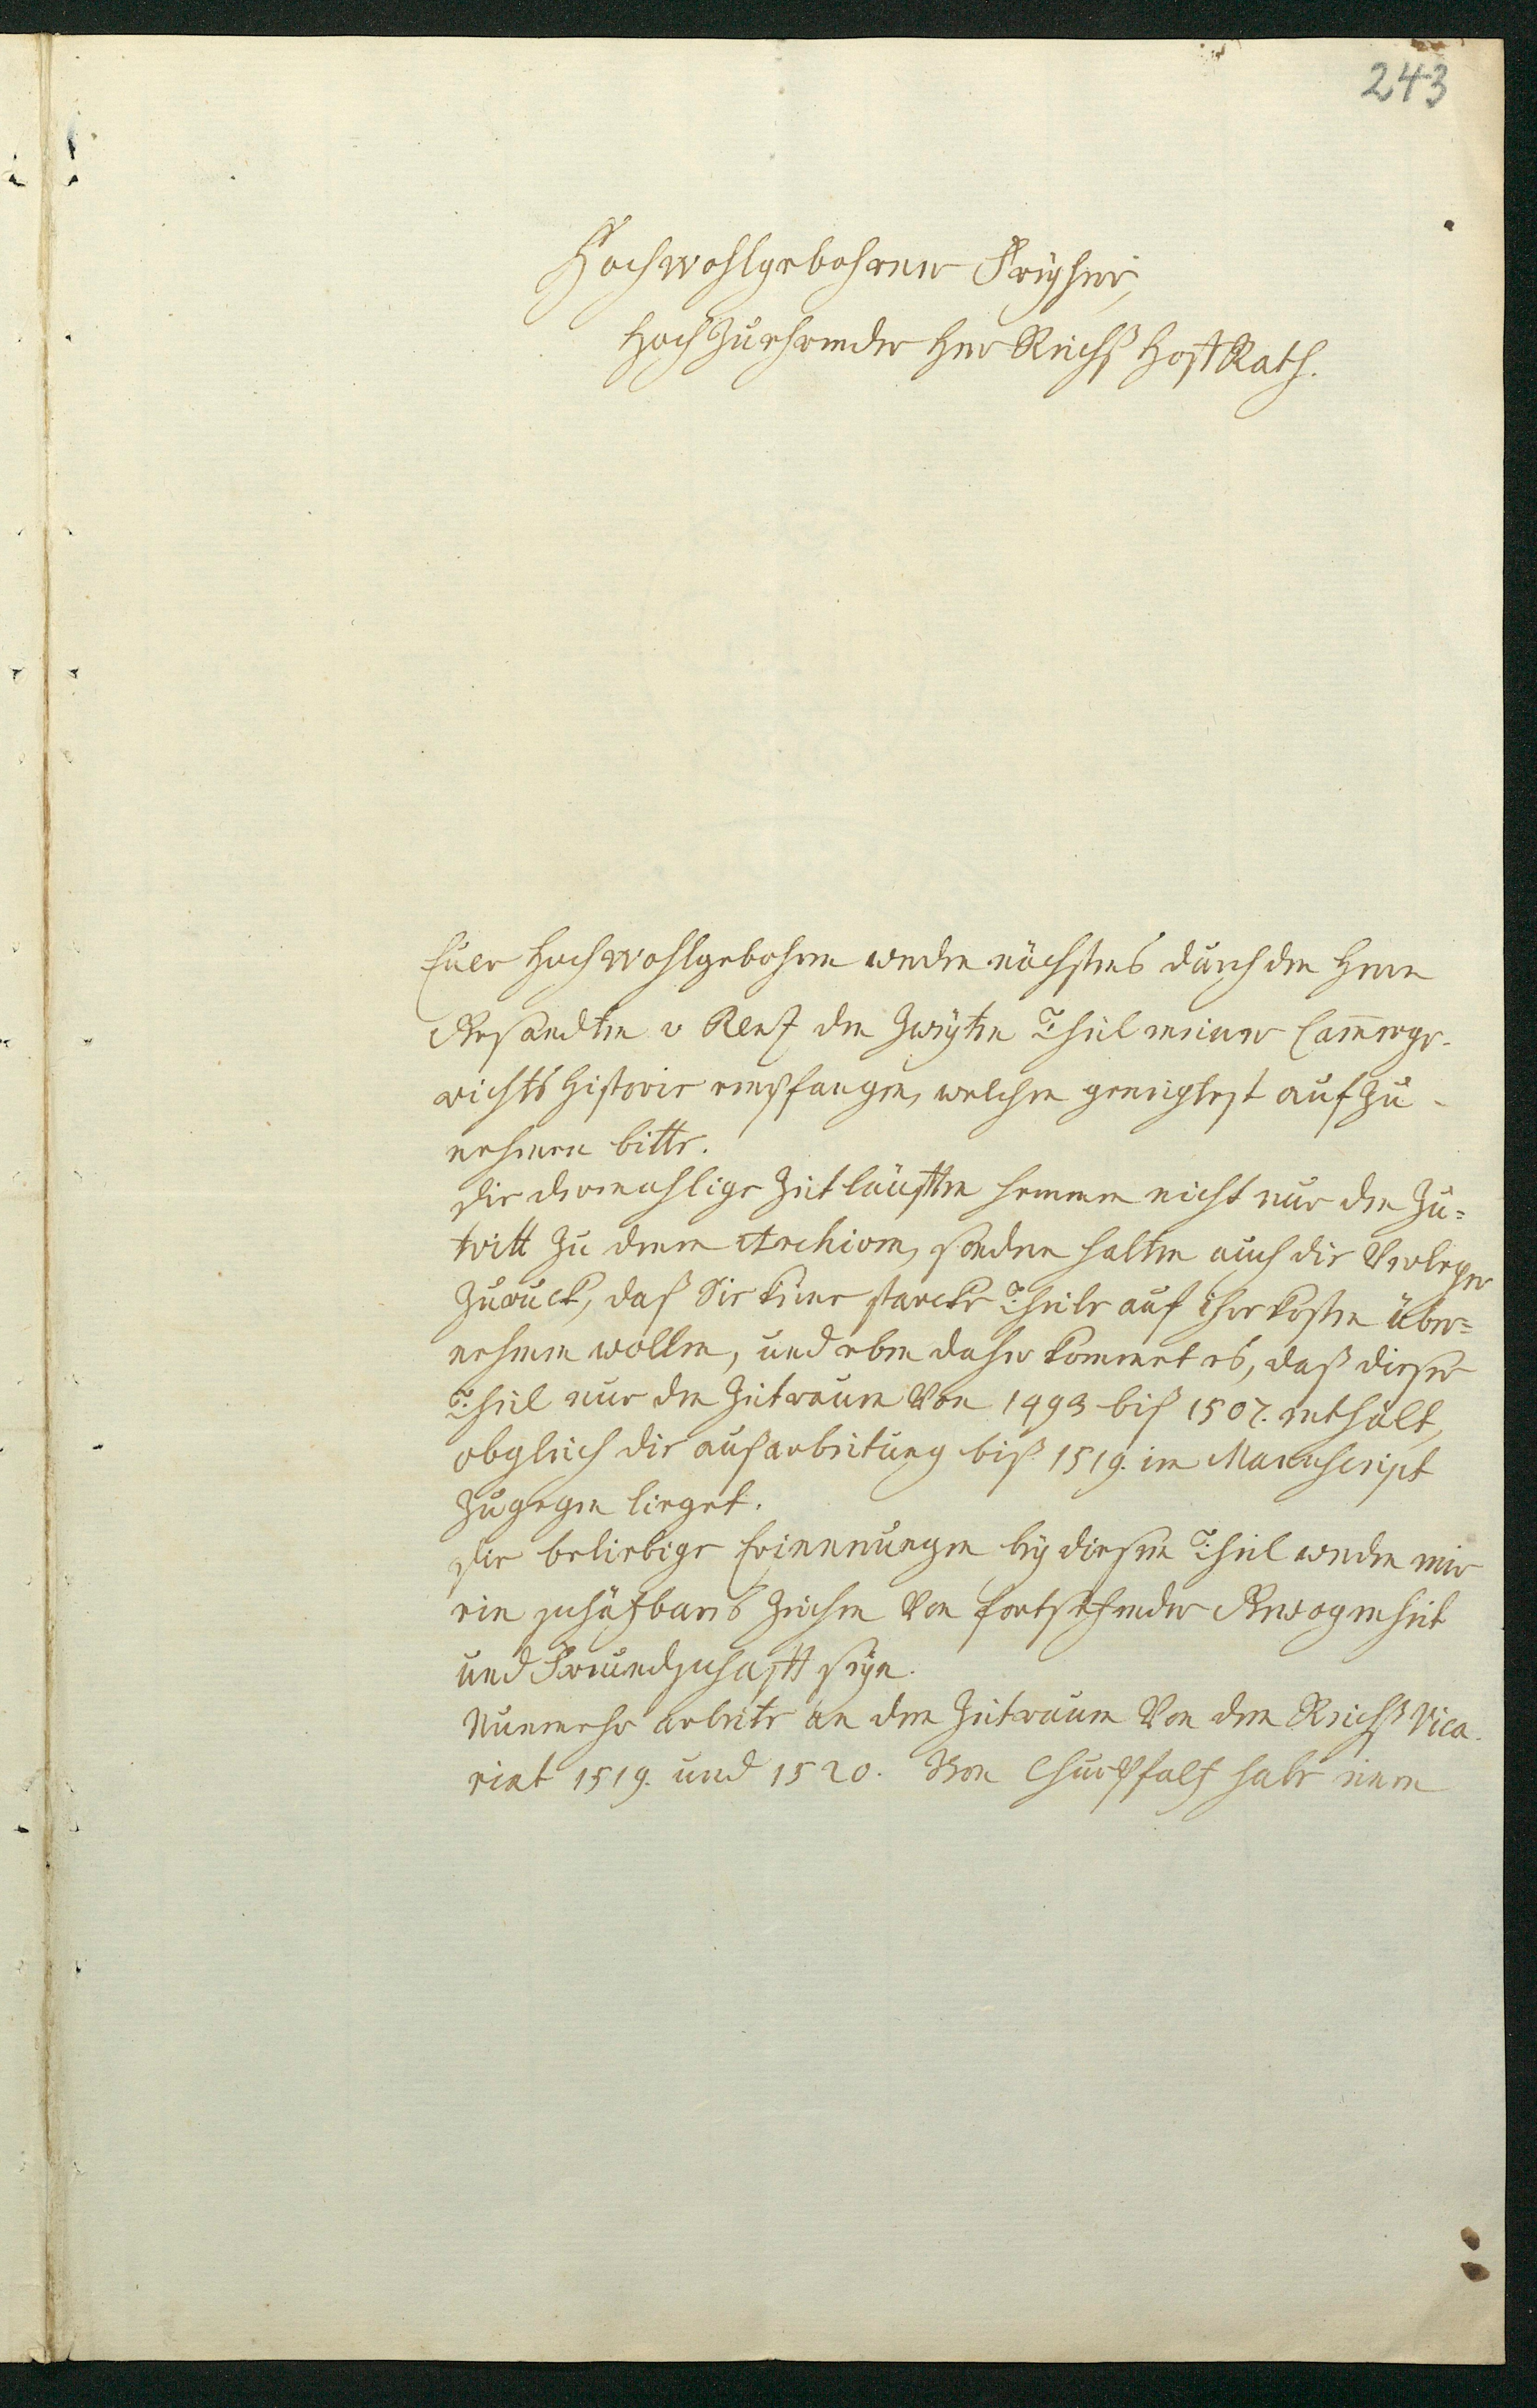 243
Hochwohlgebohrner Freyherr,
Hochzuehrender Herr Reichß HoftRath.
Euer Hochwohlgebohren werden nächstens durch den Herrn
Gesandten v den Zweyten Theil meiner Cam̅erge-
richts Historie empfangen, welchen geneigtest aufzu-
nehmen bitte.
Die dermahlige Zeitläufften hemmen nicht nur den Zu=
tritt zu denen Archiven, sondern halten auch die Verleger
zurück, daß Sie keine starcke Theile auf Ihre kosten über=
nehmen wollen, und eben daher kommet es, daß dieser
Theil nur den Zeitraum Von 1493 biß 1507. enthält,
obgleich die außarbeitung biß 1519. im Manuscript
zugegen lieget.
Die beliebige Erinnerungen bey diesem Theil werden mir
ein schäzbares Zeichen Von fortsezender Gewogenheit
und Freundschafft seyn.
Nunmehr arbeite an dem Zeitraum Von dem Reichß Vica-
riat 1519. und 1520. Von ChurPfalz habe einen